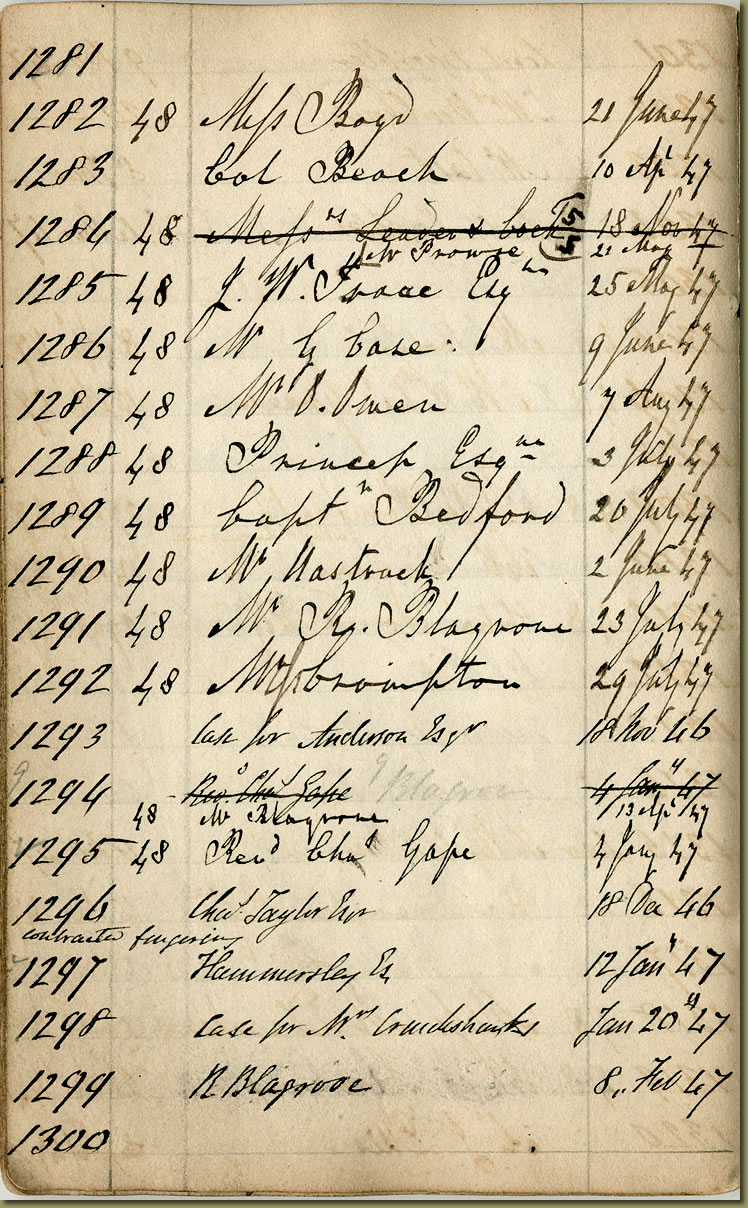 1281
1282 48 Miss Boyd 21 June 47
1283 Col Beach 10 Apl 47
1284 48 Messrs Leader & Cock 18 Nov 47
Mr Prowse 21 May
1285 48 J. W. Isaac Esqre 25 May 47
1286 48 Mr G Case 9 June 47
1287 48 Mrs O. Owen 7 Aug 47
1288 48 Princep Esqre 3 July 47
1289 48 Captn Bedford 20 July 47
1290 48 Mr 2 June 47
1291 48 Mr Rd. Blagrove 23 July 47
1292 48 Crompton 29 July 47
1293 Case for Anderson Esqr 18 Nov 46
1294 Revd. Chas Gape 4 Jany 47
48 Mr Blagrove 13 Apl 47
1295 48 Revd Chas Gape 4 Jany 47
1296 Chas Taylor Esqr 18 Dec 46
contracted fingering
1297 Hammersley Es 12 Jany 47
1298 Case for Mrs Cruickshanks Jan 20th 47
1299 R Blagrove 8,, Feb 47
1300